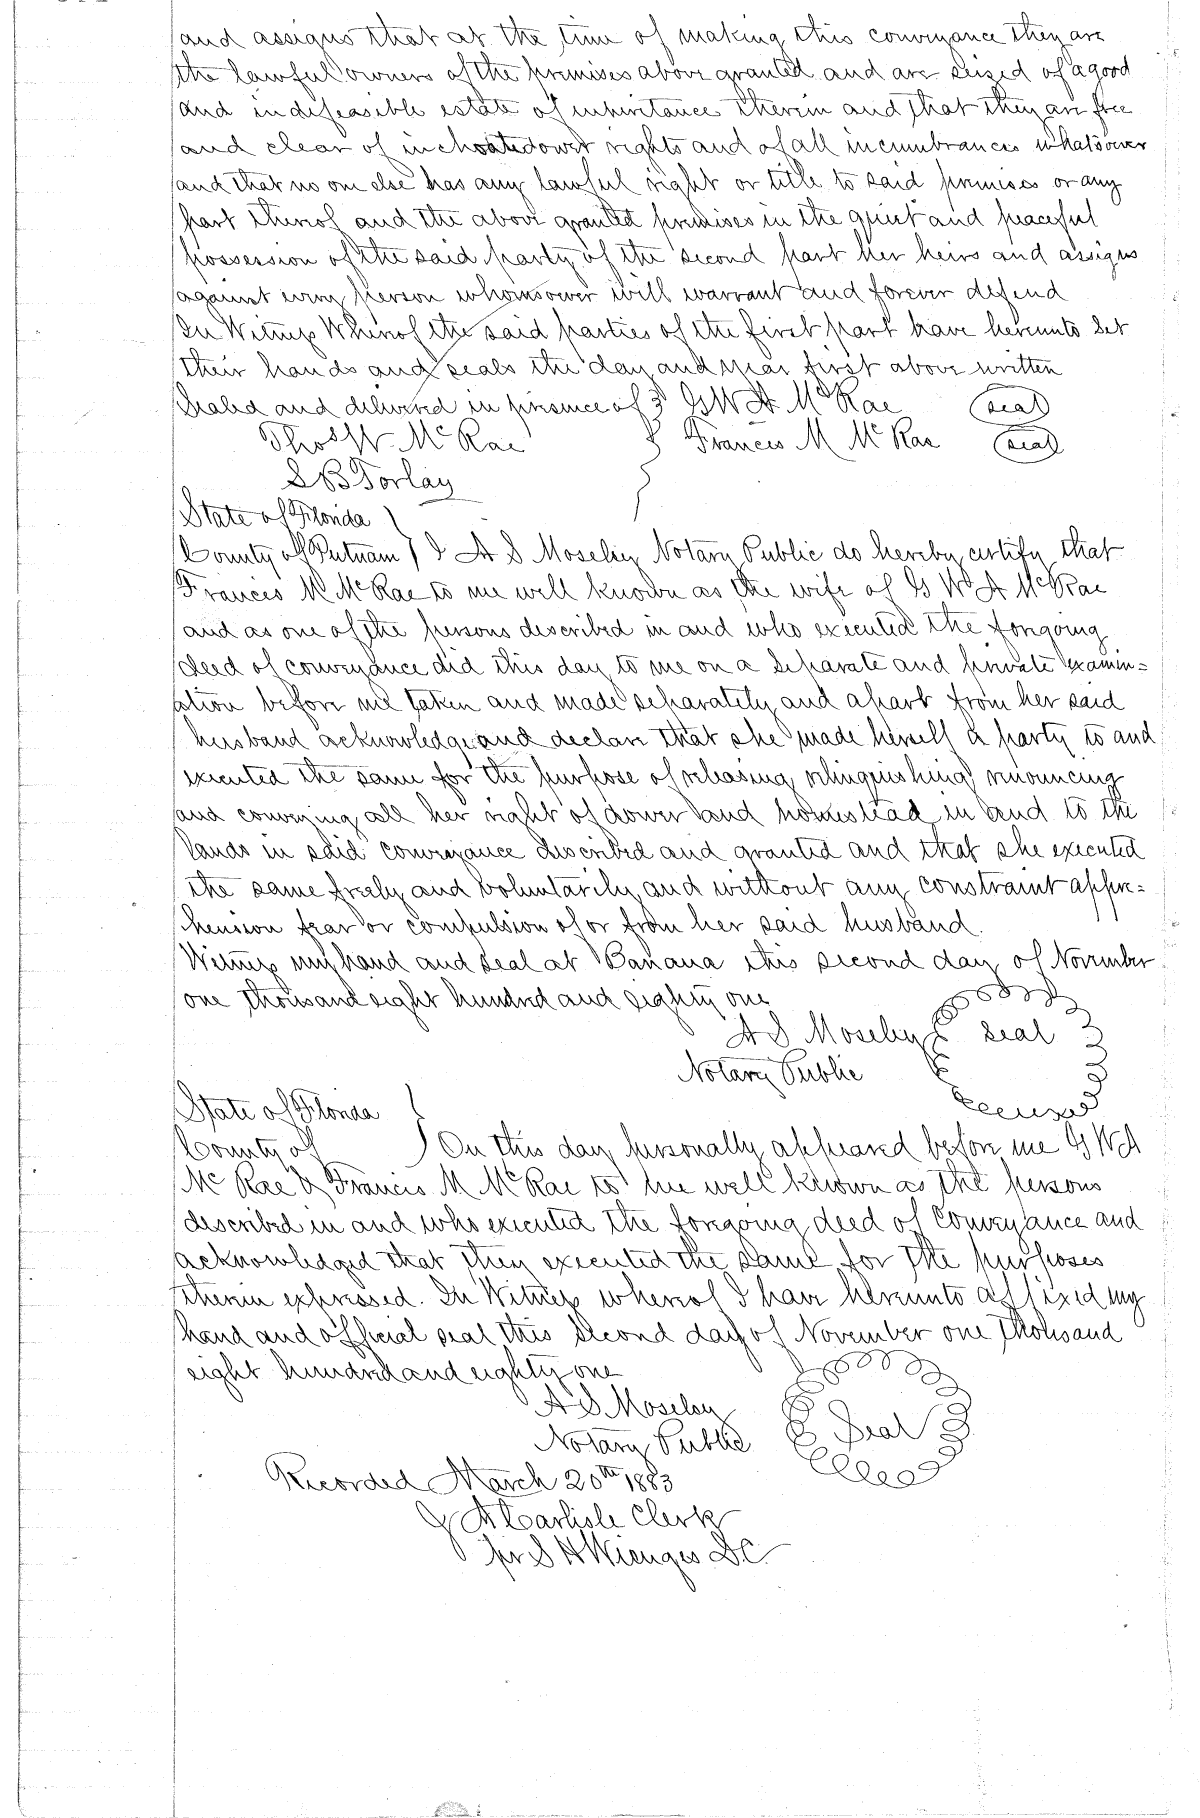 and assigns that at the time of making this conveyance they are
the lawful owners of the premises above granted and are seized of a good
and indefeasible estate of inheritance therein and that they are free
and clear of inchoate dower rights and of all incumbrances whatsoever
and that no one else has any lawful right or title to said premises or any
part thereof and the above granted premises in the quiet and peaceful
possession of the said party of the second part her heirs and assigns
against every person whomsoever will warrant and forever defend
In Witness Whereof the said parties of the first part have hereunto set
their hands and seals the day and year first above written
Sealed and delivered in presence of } G W A McRae (seal)
Thos W McRae } Francis M McRae (seal)
S B Torlay
State of Florida }
County of Putnam } I A S Moseley Notary Public do hereby certify that
Francis M McRae to me well known as the wife of G W A McRae
and as one of the persons described in and who executed the forgoing
deed of conveyance did this day to me on a separate and private examin=
ation before me taken and made separately and apart from her said
husband acknowledge and declare that she made herself a party to and
executed the same for the purpose of releasing, relinquishing renouncing
and conveying all her right of dower and homestead in and to the
lands in said conveyance described and granted and that she executed
the same freely and voluntarily and without any constraint appre=
hension fear or compulsion of or from her said husband.
Witness my hand and seal at Banana this second day of November
one thousand eight hundred and eighty one
A S Moseley Seal
Notary Public
State of Florida }
County of } On this day personally appeared before me G W A
McRae & Francis M McRae to me well known as the persons
described in and who executed the forgoing deed of conveyance and
acknowledged that they executed the same for the purposes
therein expressed. In Witness whereof I have hereunto affixed my
hand and official seal this second day of November one thousand
eight hundred and eighty one
A S Moseley Seal
Notary Public
Recorded March 20th 1883
J A Carlisle Clerk
pr S H Wienges D C